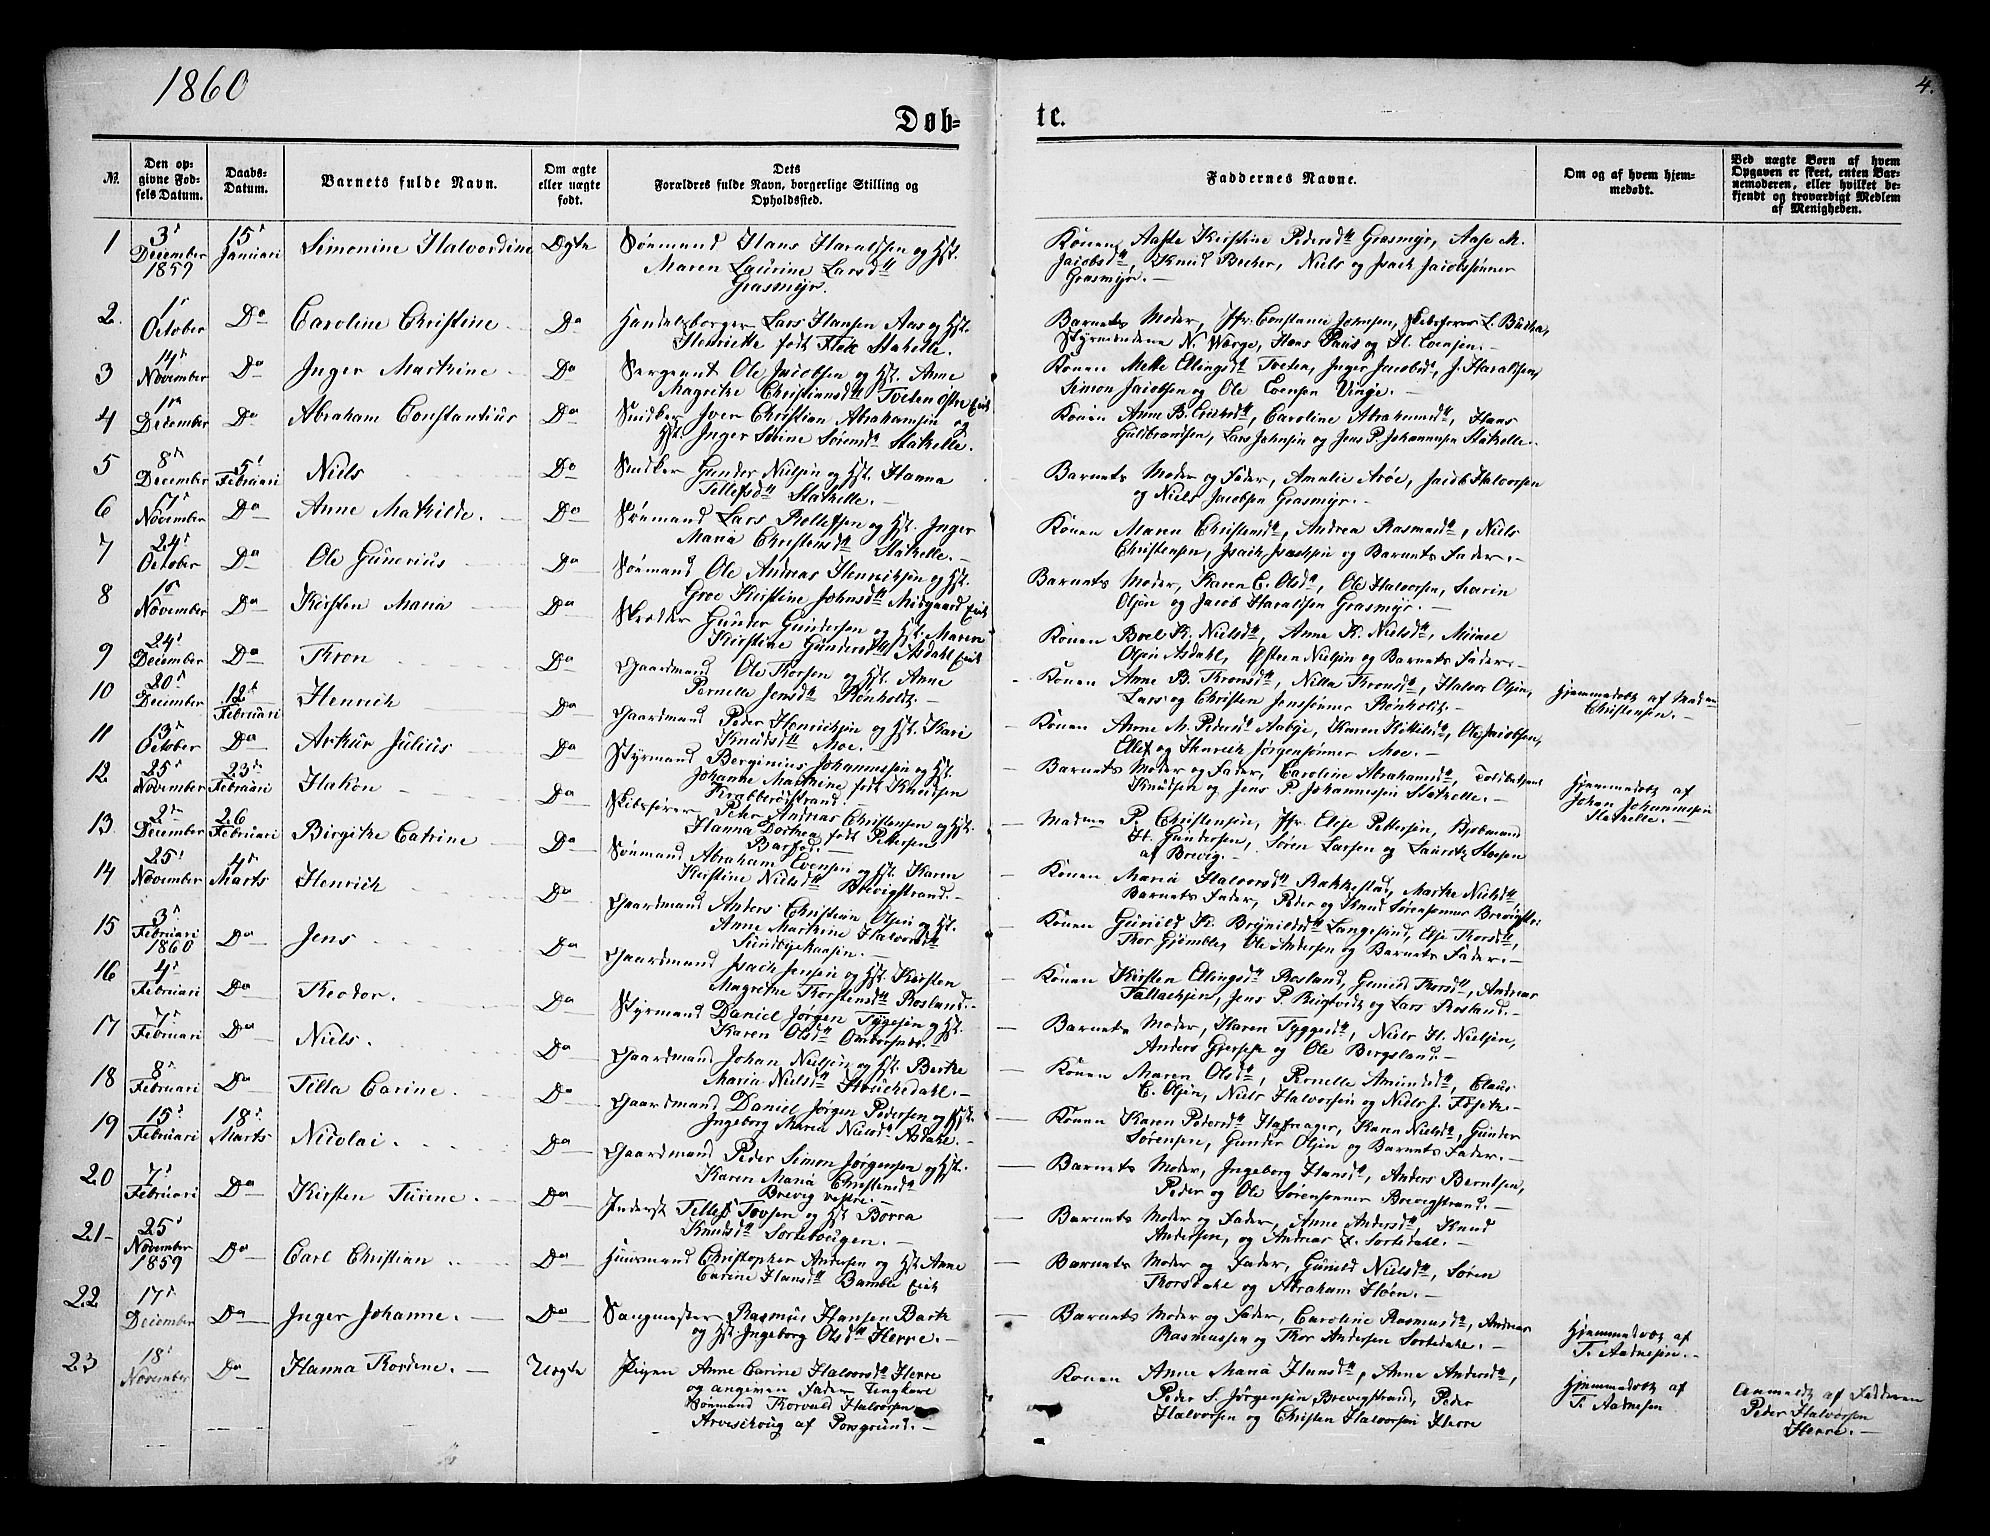 1860
4.
Døb=
te.
No.
Den op=
givne Fød=
sels Datum.
Daabs=
Datum.
Barnets fulde Navn.
Om ægte
eller uægte
født.
Dets
Forældres fulde Navn, borgerlige Stilling og
Opholdssted.
Faddernes Navne.
Om og af hvem hjem=
medøbt.
Ved uægte Børn af hvem
Opgaven er skeet, enten Bar=
nemoderen, eller hvilket be=
kjendt og troværdigt Medlem
af Menigheden.
1
3
December
1859
15
Januari
Simonine Halvordine
Ægte
Sømand Hans Haraldsen og Hst.
Maren Laurine Larsd
Grasmyr.
Konen Aaste Kirstine Pedersd Grasmyr, Aase M.
Jacobsd, Knud Becker, Niels og Isach Jacobsønner
Grasmyr.
2.
1
October
Do
Caroline Christine
Do
Handelsborger Lars Hansen Aas og Hst.
Henriette født Flok Stathelle.
Barnets Moder, Jfr. Constance Johnsen, Skibsfører L. Butka,
Styrmændene N. Worge, Hans Paus og H. Evensen.
3
14
November
Do
Inger Marthine
Do
Sergeant Ole Jacobsen og Hst. Anne
Magrethe Christiansd Tveten østre Eiet
Konen Mette Ellingsd Tveten, Inger Jacobsd, J. Haraldsen,
Simon Jacobsen og Ole Evensen Vinge.
4
1
December
Do
Abraham Constantius
Do
Snedker Iver Christian Abrahamsen og
Hst. Inger Sørine Sørensd Stathelle.
Konen Anne B. Eriksd, Caroline Abrahamsd, Hans
Guldbrandsen, Lars Johnsen og Jens P. Johannesen Stathelle.
5
8
December
5
Februari
Niels
Do
Snedker Gunder Nielsen og Hst. Hanna
Tellefsd Stathelle.
Barnets Moder og Fader, Amalie Arøe, Jacob Halvorsen
og Niels Jacobsen Grasmyr.
6
17
November
Do
Anne Mathilde.
Do
Sømand Lars Rollefsen og Hst. Inger
Maria Christensd Stathelle.
Konen Maren Christensd, Andrea Rasmusd, Niels
Christensen, Isach Isachsen og Barnets Fader.
7
24
October
Do
Ole Gunerius
Do
Sømand Ole Andreas Henriksen og Hst.
Groe Kirstine Johnsd Midgaard Eiet
Barnets Moder, Karen C. Olsd, Ole Halvorsen, Søvrin
Olsen og Jacob Haraldsen Grasmyr.
8
16
November
Do
Kirsten Maria
Do
Skrædder Gunder Gundersen og Hst. Maren
Kirstine Gundersd Asdahl Eiet
Konen Boel K. Nielsd, Anne K. Nielsd, Michael
Olsen Asdahl, Østen Nielsen og Barnets Fader.
9
24
December
Do
Thron
Do
Gaardmand Ole Thorsen og Hst. Anne
Pernelle Jensd Rønholt.
Konen Anne B. Thronsd, Nilla Thronsd, Halvor Olsen,
Lars og Christen Jenssønner Rønholt.
10
20
December
12
Februari
Henrich
Do
Gaardmand Peder Henrichsen og Hst. Kari
Knudsd Moe.
Konen Anne M. Pedersd Aabye, Karen Kittilsd, Ole Jacobsen,
Ellef og Henrich Jørgensønner Moe.
Hjemmedøbt af Madm
Christensen.
11
13
October
Do
Arthur Julius
Do
Styrmand Berginius Johannesen og Hst.
Johanne Marthine født Knudsen
Krabberødstrand.
Barnets Moder og Fader, Caroline Abrahamsd, Toldbetjent
Knudsen og Jens P. Johannesen Stathelle.
Hjemmedøbt af
Johan Johannesen
Stathelle.
12
25
November
23
Februari
Hakon
Do
Skibsfører Peter Andreas Christensen og Hst.
Hanna Dorthea født Pettersen
Barfod.
Madme P. Christensen, Jfr. Elise Pettersen, Kjøbmand
H. Gundersen, Søren Larsen og Lauritz Stoesen
af Brevig.
13
2
December
26
Februari
Birgithe Catrine
Do
Sømand Abraham Evensen og Hst. Karen
Kirstine Nielsd Brevigstrand.
Konen Maria Halvorsd Rakkestad, Marthe Nielsd,
Barnets Fader, Peder og Knud Sørensønner Brevigstr.
14
25
November
4
Marts
Henrich
Do
Gaardmand Anders Christian Olsen og Hst.
Anne Marthine Halvorsd
Sundbye Kaasen.
Konen Gunild K. Brynildsd Langesund, Else Thorsd,
Thor Gjømble, Ole Andersen og Barnets Fader.
15
3
Februari
1860
Do
Jens
Do
Gaardmand Isach Jensen og Hst. Kirsten
Magrethe Thorstensd Rosland.
Konen Kirsten Ellingsd Rosland, Gunild Thorsd, Andreas
Tallachsen, Jens P. Rugtvedt og Lars Rosland.
16
4
Februari
Do
Theodor.
Do
Styrmand Daniel Jørgen Tygesen og Hst.
Karen Olsd Ombordsnes.
Barnets Moder, Karen Tyggesd, Niels H. Nielsen,
Anders Gjersøe og Ole Bergsland.
17
7
Februari
Do
Niels.
Do
Gaardmand Johan Nielsen og Hst. Berthe
Maria Nielsd Stuchedahl.
Konen Maren Olsd, Pernelle Amundsd, Claus
C. Olsen, Niels Halvorsen og Niels J. Fosse.
18
8
Februari
Do
Tilla Carine.
Do
Gaardmand Daniel Jørgen Pedersen og Hst.
Ingeborg Maria Nielsd Asdahl.
Konen Karen Pedersd Hafsager, Karen Nielsd, Gunder
Sørensen, Gunder Olsen og Barnets Fader.
19
15
Februari
18
Marts
Nicolai.
Do
Gaardmand Peder Simon Jørgensen og Hst.
Karen Maria Christensd
Brevig vestre.
Barnets Moder, Ingeborg Hansd, Anders Berntsen,
Peder og Ole Sørensønner Brevigstrand.
20
7
Februari
Do
Kirsten Turine.
Do
Inderst Tellef Tovsen og Hst Borra
Knudsd Sortebougen.
Barnets Moder og Fader, Anne Andersd, Knud
Andersen, og Andreas L. Sortedahl.
21
25
November
1859
Do
Carl Christian
Do
Huusmand Christopher Andersen og Hst Anne
Carine Hansd Bamble Eiet
Barnets Moder og Fader, Gunild Nielsd, Søren
Thorsdahl og Abraham Høen.
22
17
December
Do
Inger Johanne.
Do
Saugmester Rasmus Hansen Barth
og Hst Ingeborg Olsd Herre.
Barnets Moder og Fader, Caroline Rasmusd, Andreas
Rasmussen og Thor Andersen Sortedahl.
Hjemmedøbt af
T. Aadnesen.
23
18
November
Do
Hanna Thordine.
Uægte
Pigen Anne Carine Halvorsd Herre
og angiven Fader Ungkarl
Sømand Thorvald Halvorsen
Arvesikvig af Porsgrund.
Konen Anne Maria Hansd, Anne Andersd,
Peder S. Jørgensen Brevigstrand, Peder
Halvorsen og Christen Halvorsen Herre
Hjemmedøbt af
T. Aadnesen
Anmeldt af Fadderen
Peder Halvorsen
Herre.